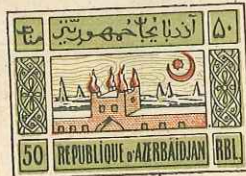 منات آذربایجان جمهوریتی ۵۰
50 REPUBLIQUE D'AZERBAÏDJAN RBL.